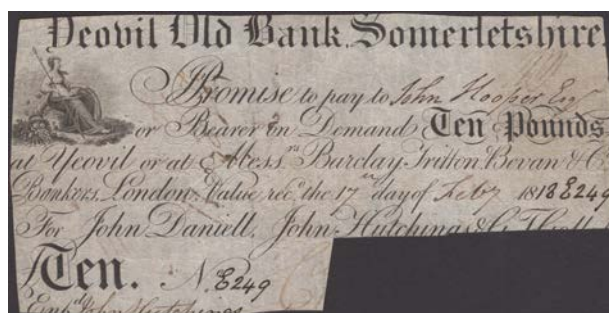 Yeovil Old Bank. Somersetshire
I Promise to pay to John Hooper Esqr
or Bearer on Demand Ten Pounds
at Yeovil or at Messrs Barclay Tritton Bevan & Co
Bankers, London. Value recd. the 17th day of Feby 1818 E249
For John Daniell, John Hutchings &
Ten. No. E249
Entd John Hutchings